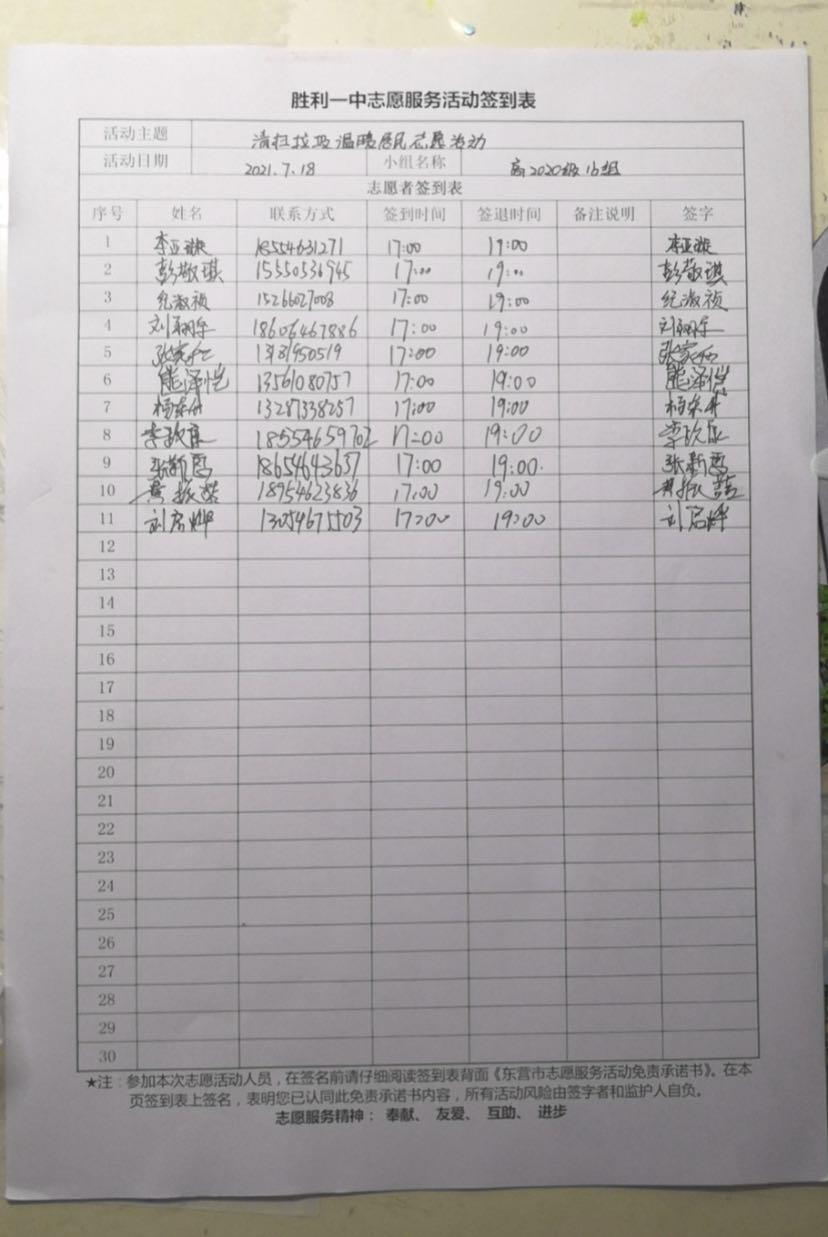 胜利一中志愿服务活动签到表
活动主题 清扫垃圾温暖居民志愿活动
活动日期 2021.7.18 小组名称 高2020级16组
志愿者签到表
序号 姓名 联系方式 签到时间 签退时间 备注说明 签字
1 李亚璇 18554631271 17:00 19:00 李亚璇
2 彭敬琪 15550536945 17:00 19:00 彭敬琪
3 纪淑祯 15266027008 17:00 19:00 纪淑祯
4 18606467886 17:00 19:00
5 17:00 19:00
6 熊泽恺 13561080757 17:00 19:00 熊泽恺
7 13287338257 17:00 19:00
8 18554659702 17:00 19:00
9 18654643637 17:00 19:00.
10 18954623836 17:00 19:00
11 刘启烨 13054675503 17:00 19:00 刘启烨
12
13
14
15
16
17
18
19
20
21
22
23
24
25
26
27
28
29
30
★注：参加本次志愿活动人员，在签名前请仔细阅读签到表背面《东营市志愿服务活动免责承诺书》。在本
页签到表上签名，表明您已认同此免责承诺书内容，所有活动风险由签字者和监护人自负。
志愿服务精神：奉献、友爱、互助、进步